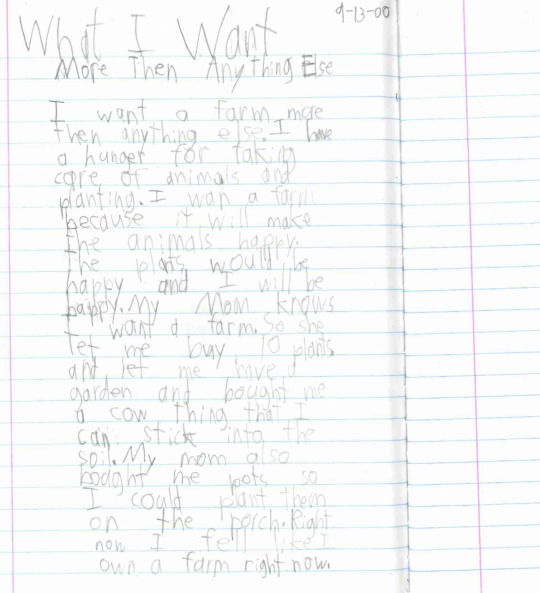 9-13-00
What I Want
More Then Anything Else
I want a farm more
then anything else. I have
a hunger for taking
care of animals and
planting. I wan a farm
because it will make
the animals happy.
the plants would be
happy and I will be
happy. My Mom knows
I want a farm. So she
let me buy 10 plants
and let me have a
garden and bought me
a cow thing that I
can stick into the
soil. My mom also
bought me pots so
I could plant them
on the porch. Right
now I fell like I
own a farm right now.